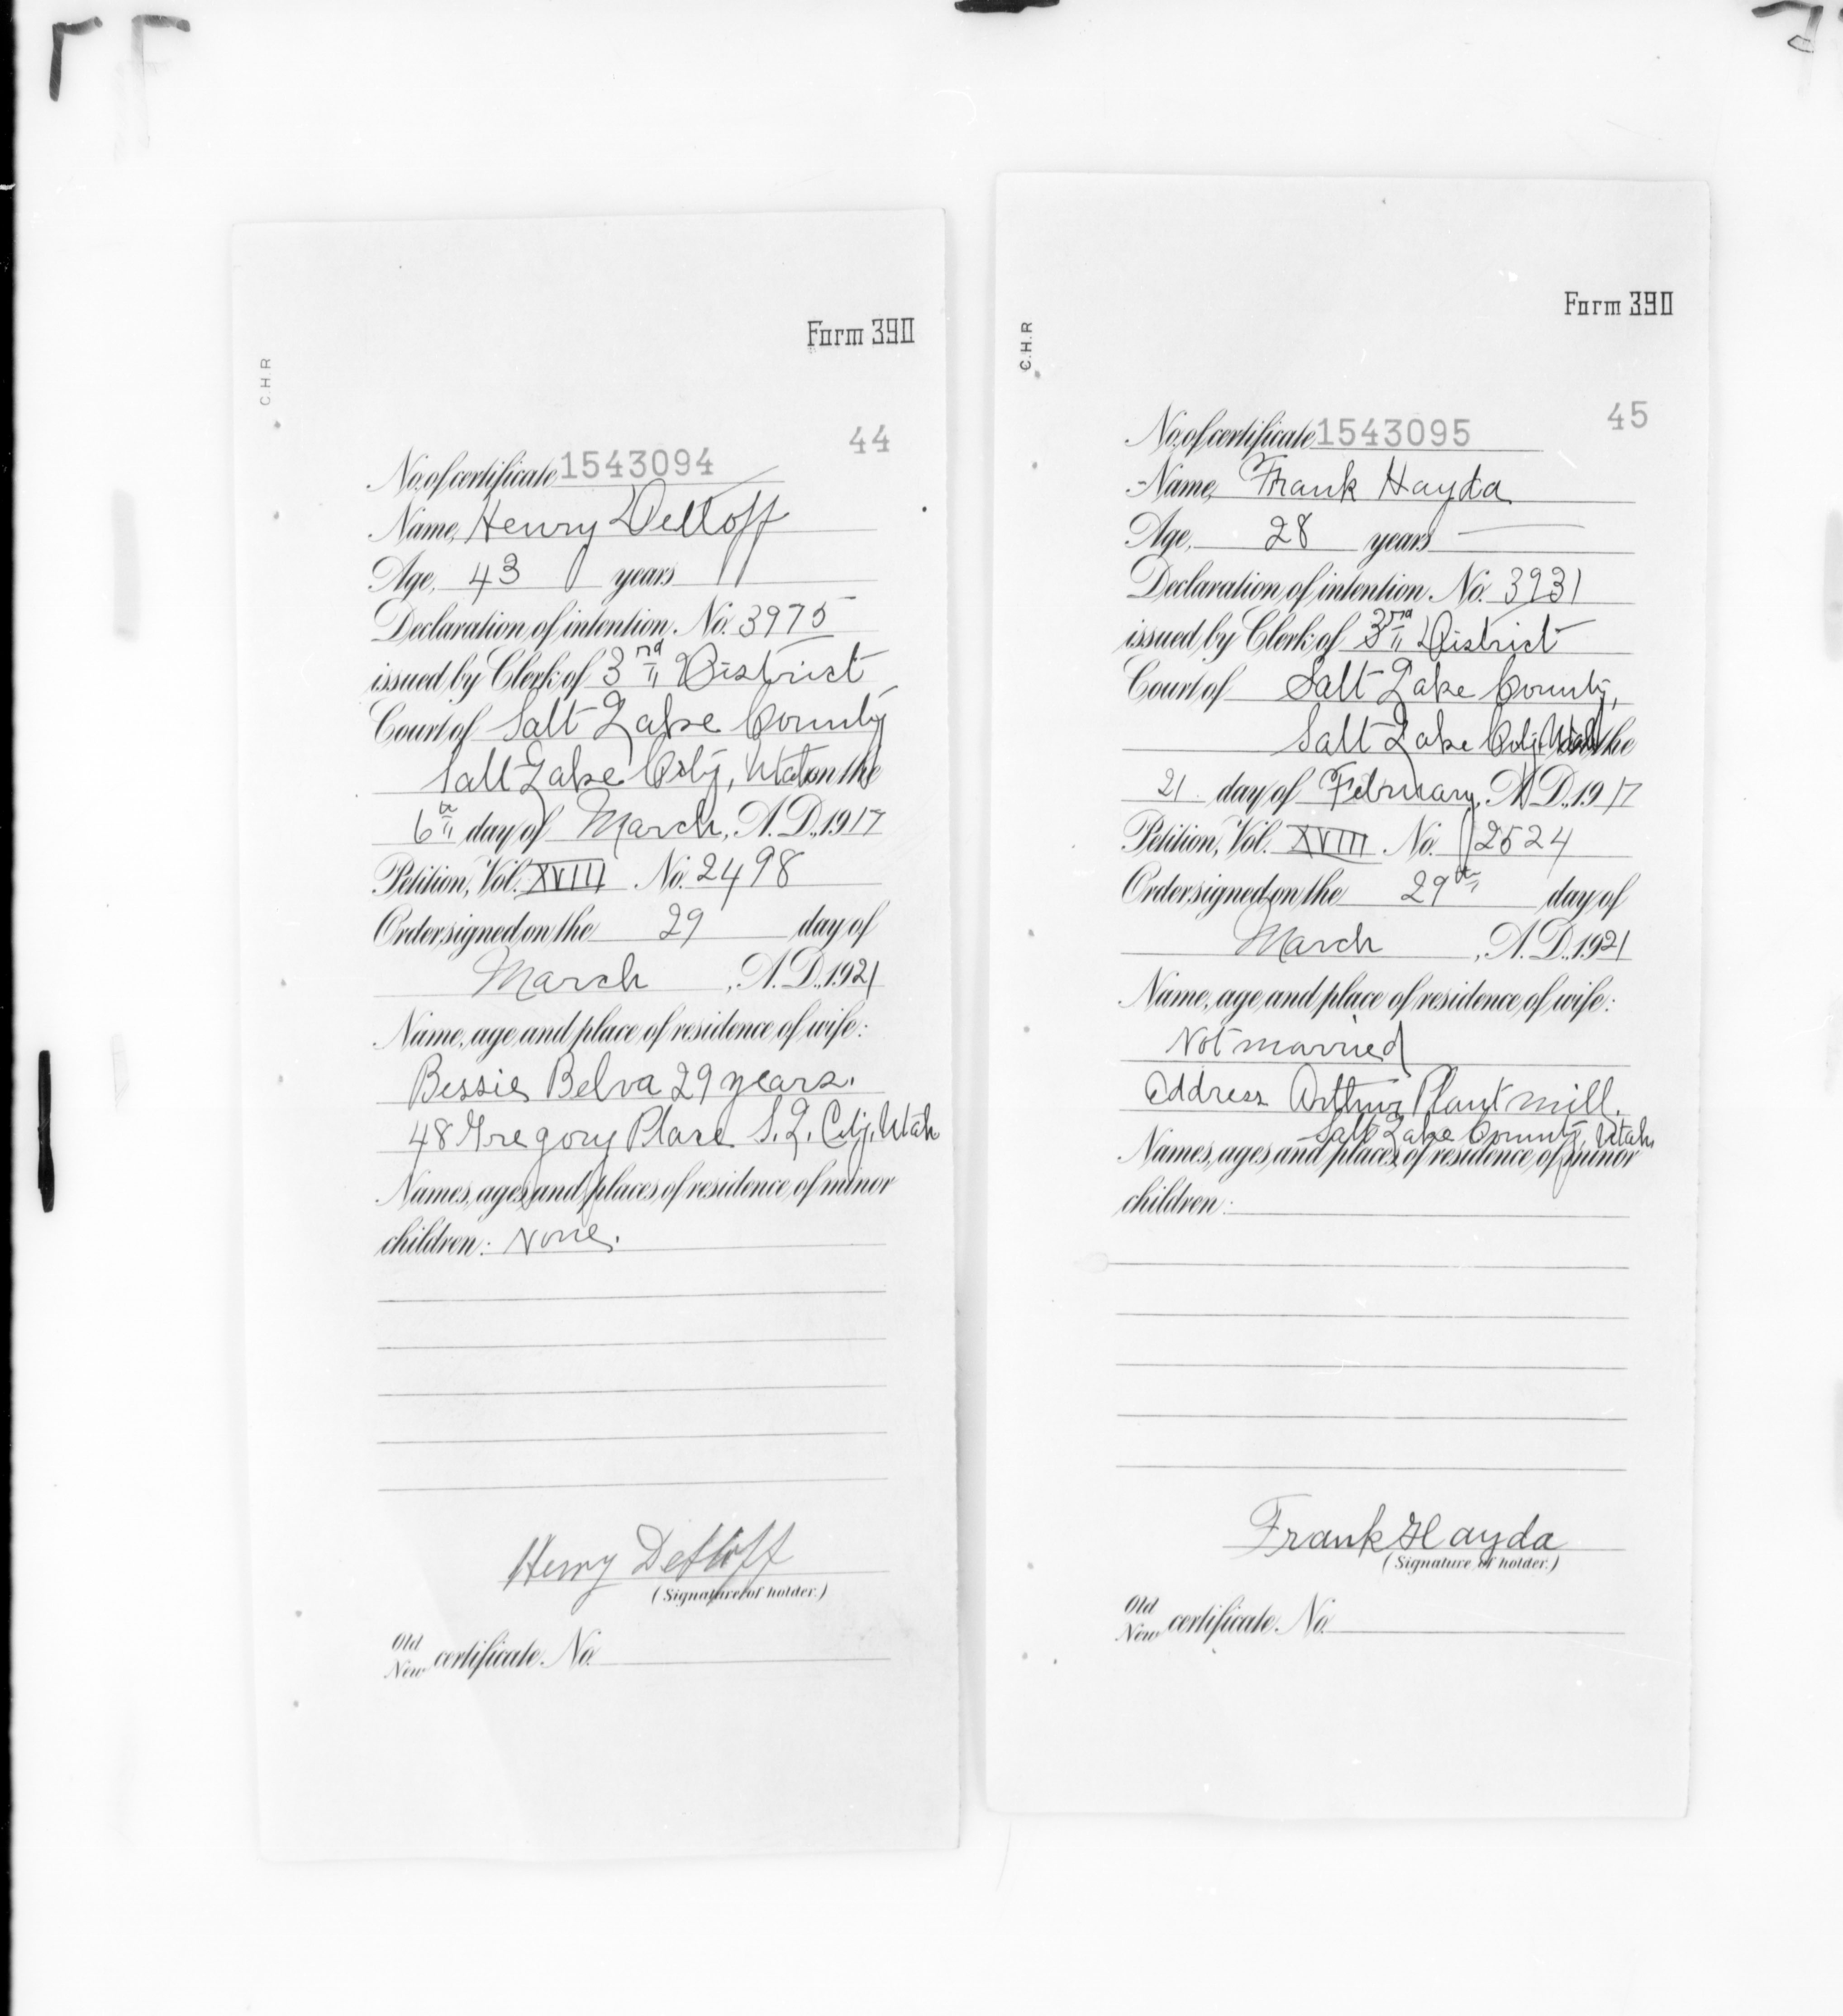 Form 390
C.H.R
44
No. of certificate 1543094
Name, Henry Detloff
Age, 43 years
Declaration of intention No. 3975
issued by Clerk of 3rd District
Court of Salt Lake County
Salt Lake City, Utah on the
6th day of March, A.D., 1917
Petition, Vol. XVIII No. 2498
Order signed on the 29 day of
March, A.D., 1921
Name, age and place of residence of wife:
Bessie Belva 29 years.
48 Gregory Place S. L. City. Utah
Names, ages and places of residence of minor
children: None.
Henry Detloff
(Signature of holder.)
Old
New certificate No.
Form 390
C.H.R
45
No. of certificate 1543095
Name, Frank Hayda
Age, 28 years
Declaration of intention No. 3931
issued by Clerk of 3rd District
Court of Salt Lake County,
Salt Lake City, Utah on the
21 day of February, A.D., 1917
Petition, Vol. XVIII No. 2524
Order signed on the 29th day of
March, A.D., 1921
Name, age and place of residence of wife:
Not married
Address Arthur Plant mill.
Salt Lake County, Utah
Names, ages and places of residence of minor
children:
Frank Hayda
(Signature of holder.)
Old
New certificate No.